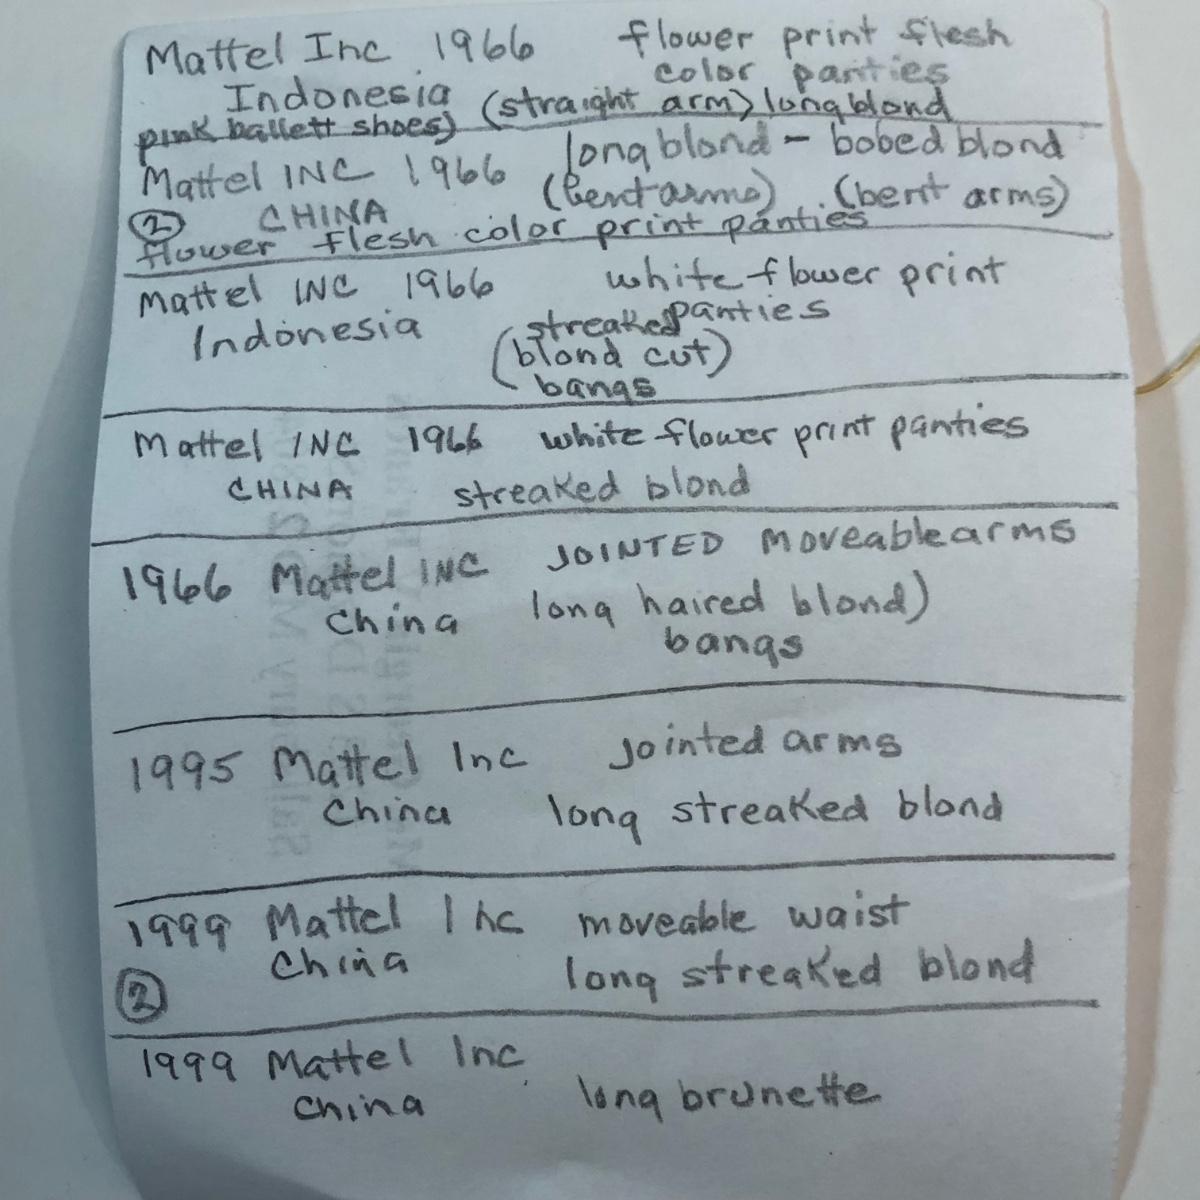 Mattel Inc 1966 flower print flesh
color panties
Indonesia (straight arm) long blond
pink ballett shoes)
Mattel INC 1966 long blond - bobed blond
(bent arms) (bent arms)
② CHINA
flower flesh color print panties
Mattel INC 1966 white flower print
Indonesia streaked panties
(blond cut)
bangs
Mattel INC 1966 white flower print panties
CHINA streaked blond
1966 Mattel INC JOINTED Moveable arms
China long haired blond)
bangs
1995 Mattel Inc Jointed arms
China long streaked blond
1999 Mattel Inc moveable waist
China long streaked blond
②
1999 Mattel Inc
China long brunette